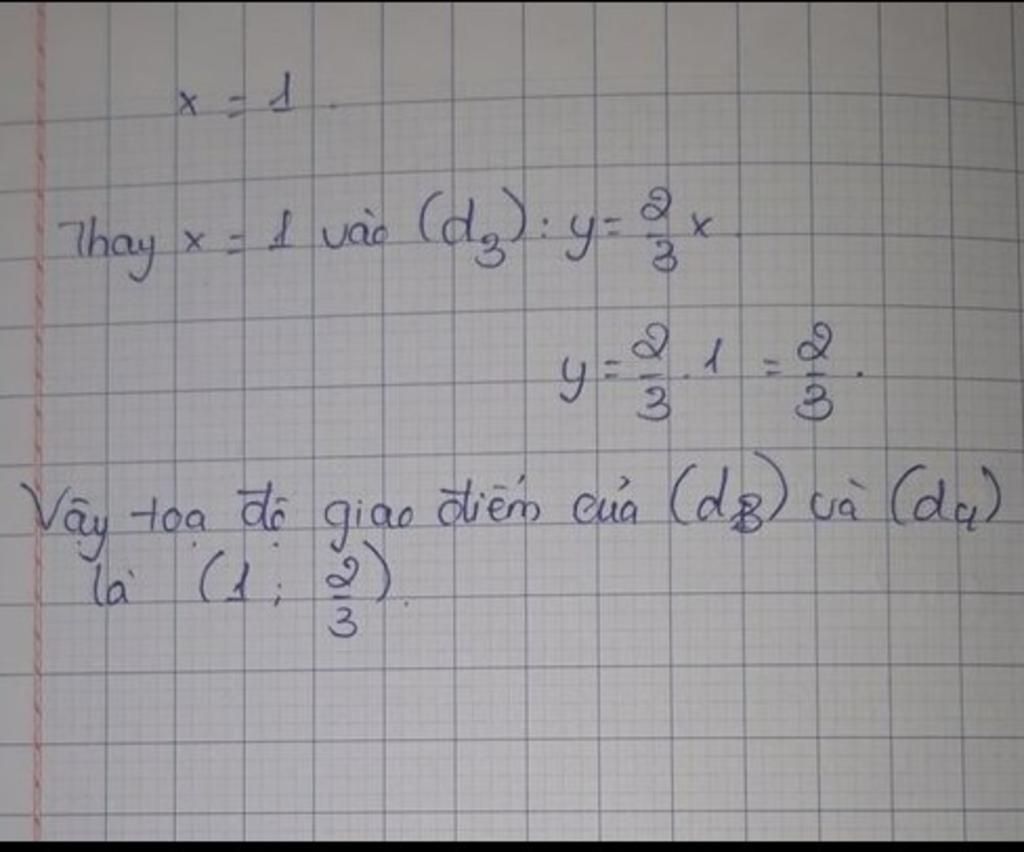 x = 1
Thay x = 1 vào (d₃): y = 2/3 x
y = 2/3 . 1 = 2/3 .
Vậy toạ độ giao điểm của (d₃) và (d₄)
là (1 ; 2/3).